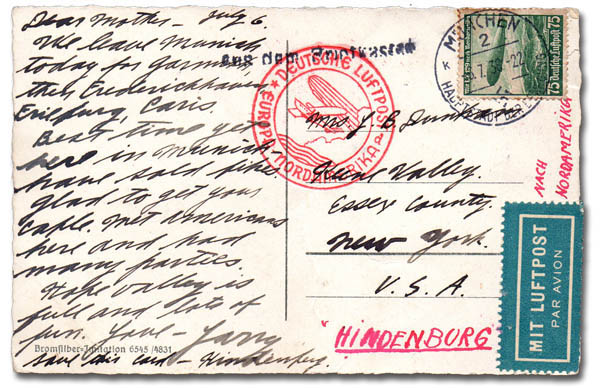 Dear Mother - July 6
We leave Munich
today for Garmisch,
then Frederickhaven
Paris
Best time yet
here in Munich-
have sold bikes
glad to get your
cable. Met Americans
here and had
many parties.
Hope Valley is
full and lots of
fun. Love -
Save this card - Hindenburg.
Bromsilber-Imitation 6545/4831
Aus dem Briefkasten
DEUTSCHE LUFTPOST
EUROPA-NORDAMERIKA
MÜNCHEN
2
Deutsche Luftpost 75
75
Mrs. J. B.
Keene Valley.
Essex County.
New York.
U. S. A.
"HINDENBURG"
NACH
NORDAMERIKA
MIT LUFTPOST
PAR AVION